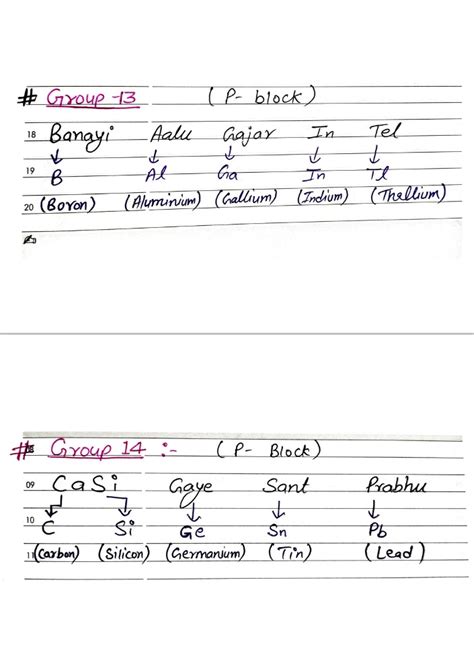 # Group -13 (P- block)
18 Banayi Aalu Gajar In Tel
↓ ↓ ↓ ↓ ↓
19 B Al Ga In Tl
20 (Boron) (Aluminium) (Gallium) (Indium) (Thellium)
# Group 14 :- (P- Block)
09 CaSi Gaye Sant Prabhu
↓ ↓ ↓ ↓ ↓
10 C Si Ge Sn Pb
11 (Carbon) (Silicon) (Germanium) (Tin) (Lead)